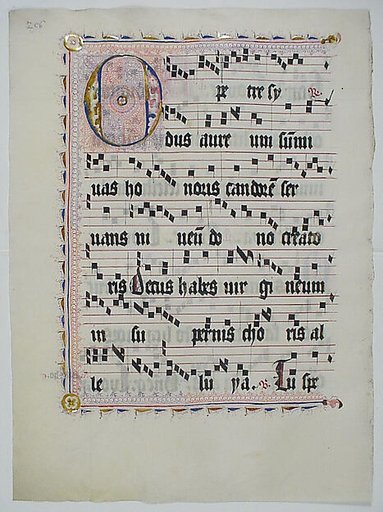 O pe tre sy
dus aure um sum̄i
uas ho noris candorē ser
uans in do no creato
ris Decus habes uir gi neum
in su pernis cho ris al
le lu ya. ℣. Tu spe